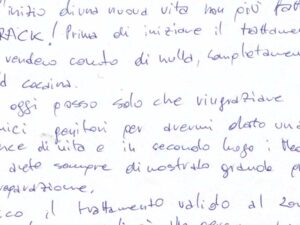 inizio di una nuova vita non più fatt
CRACK! Prima di iniziare il trattamen
vendevo conto di nulla, completamen
cocaina.
oggi posso solo che ringraziare
miei genitori per avermi dato una
di vita e in secondo luogo i Med
avete sempre dimostrato grande p
preparazione.
ico, il trattamento valido al 200